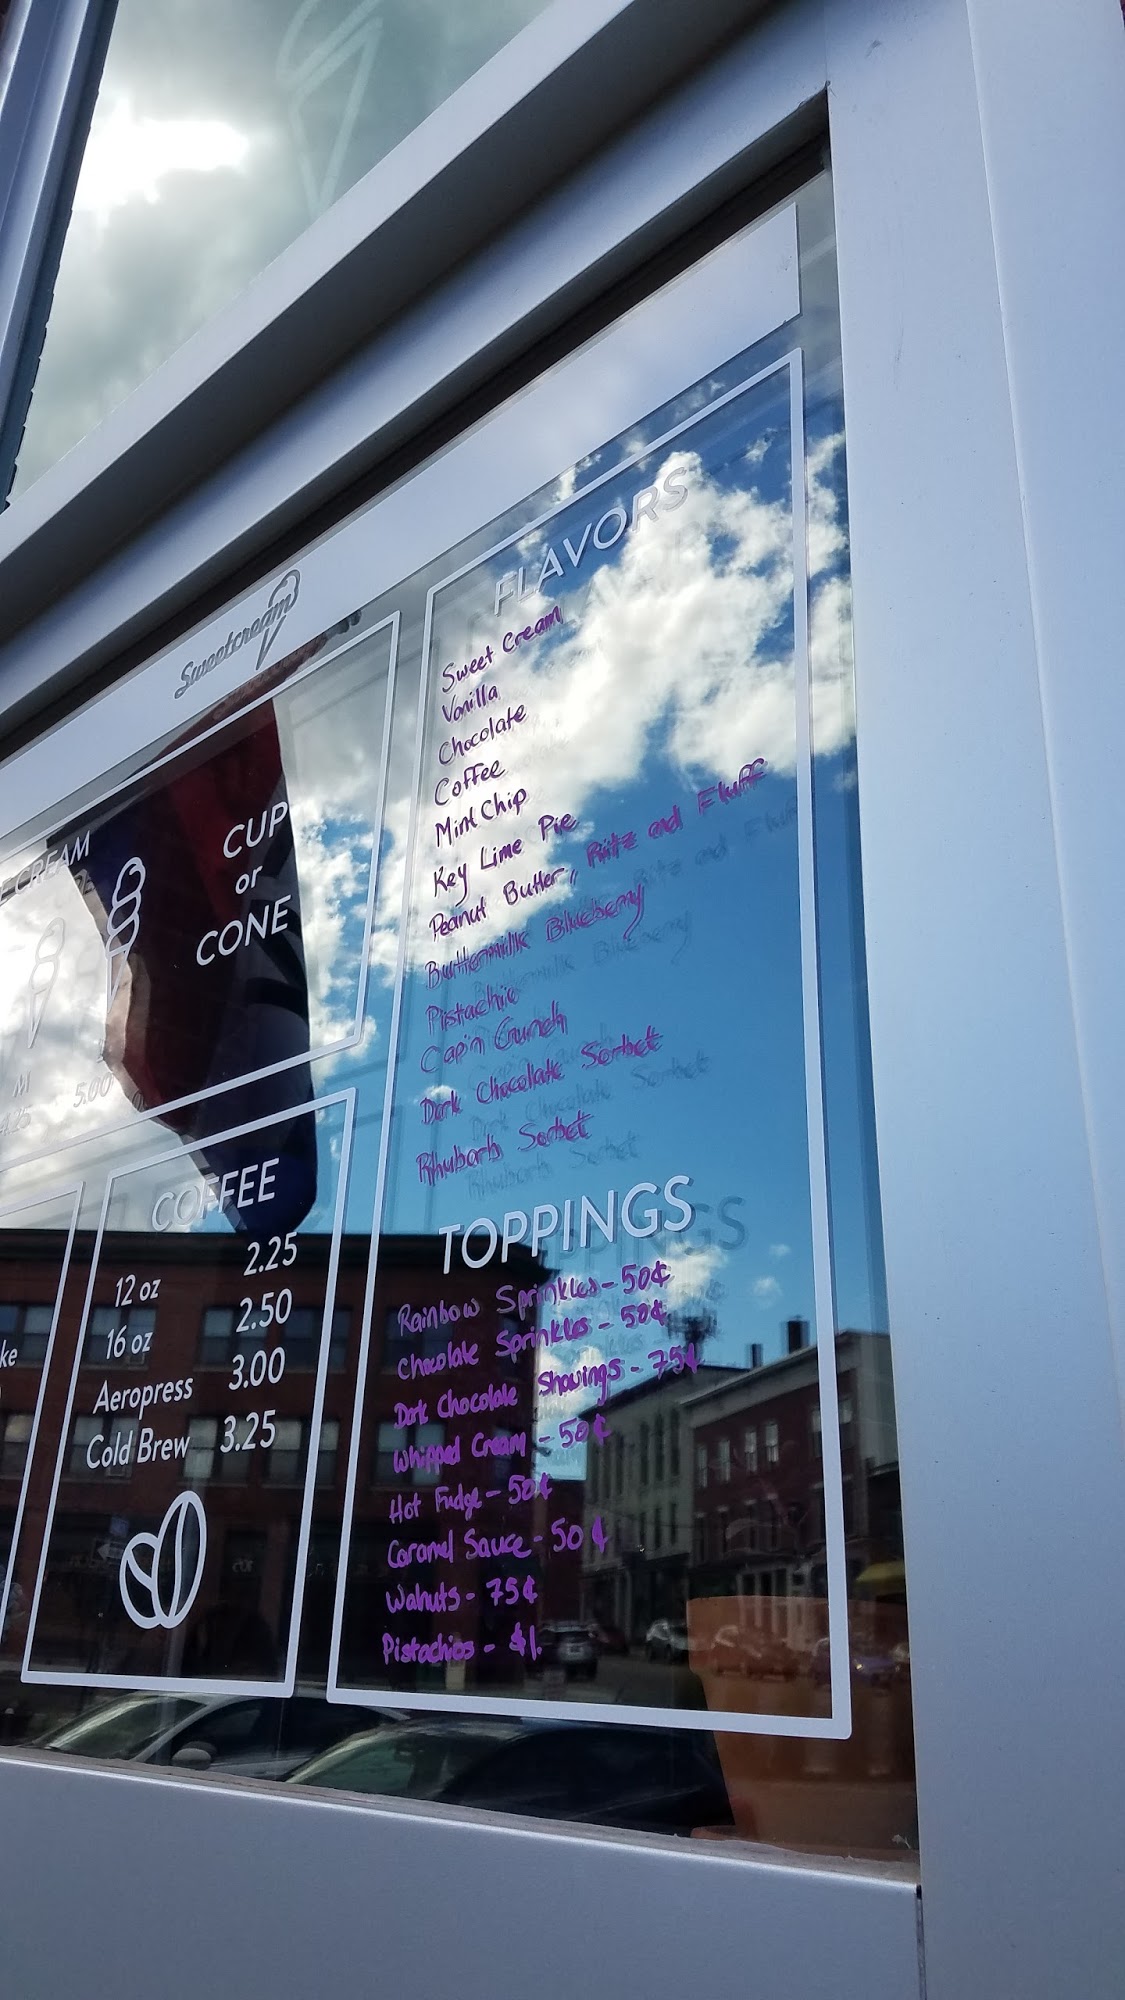 Sweetcream
CREAM
CUP
or
CONE
M
4.25 5.00
ke
COFFEE
12 oz 2.25
16 oz 2.50
Aeropress 3.00
Cold Brew 3.25
FLAVORS
Sweet Cream
Vanilla
Chocolate
Coffee
Mint Chip
Key Lime Pie
Peanut Butter, Ritz and Fluff
Buttermilk Blueberry
Pistachio
Cap'n Crunch
Dark Chocolate Sorbet
Rhubarb Sorbet
TOPPINGS
Rainbow Sprinkles - 50¢
Chocolate Sprinkles - 50¢
Dark Chocolate Shavings - 75¢
Whipped Cream - 50¢
Hot Fudge - 50¢
Caramel Sauce - 50¢
Walnuts - 75¢
Pistachios - $1.